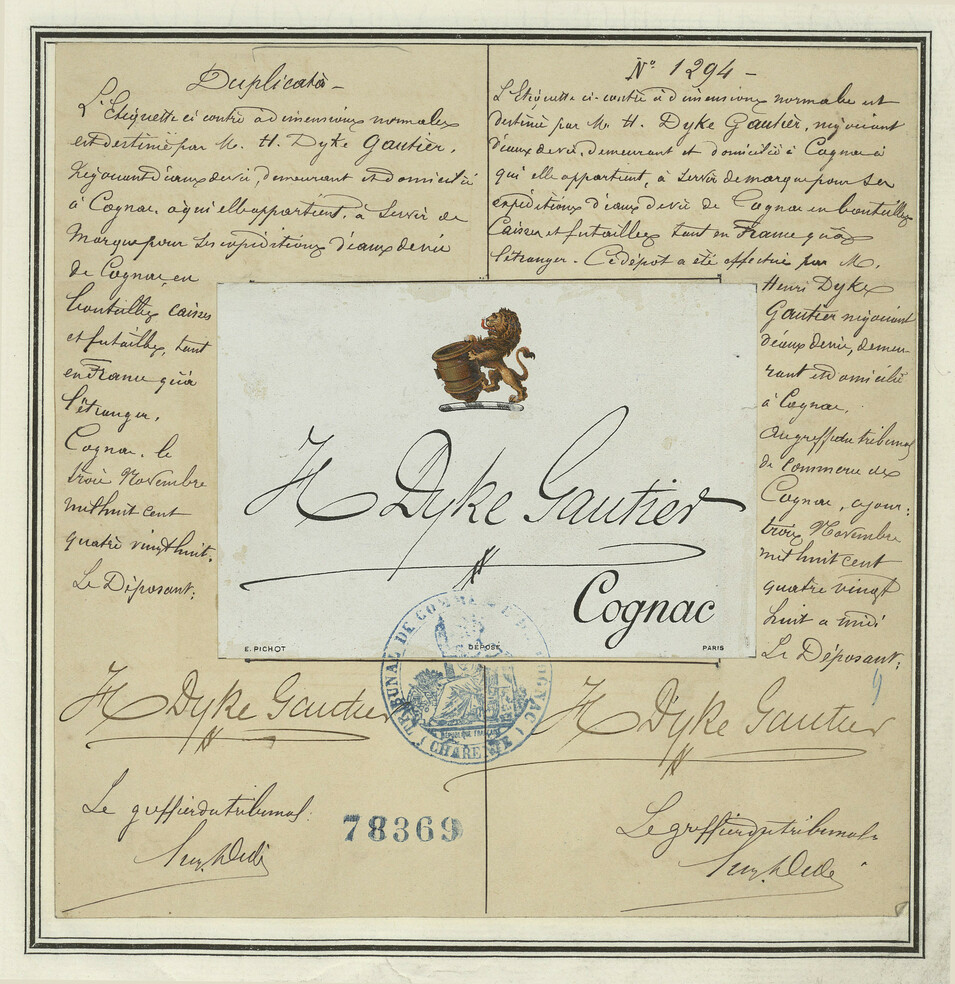 Duplicata
L'Etiquette ci contre à dimensions normales
est destiné par M. H. Dyke Gautier,
Négociant d'eaux de vie, demeurant et domicilié
à Cognac, à qui elle appartient, à servir de
Marque pour ses expéditions d'eaux de vie
de Cognac, en
bouteilles caisses
et futailles, tant
en France qu'à
l'étranger.
Cognac, le
trois Novembre
mil huit cent
quatre vingt huit.
Le Déposant:
H Dyke Gautier
Le greffier du tribunal:
78369
N° 1294
L'Etiquette ci-contre à dimensions normales est
destiné par M. H. Dyke Gautier, négociant
d'eaux de vie, demeurant et domicilié à Cognac à
qui elle appartient, à servir de marque pour ses
expéditions d'eaux de vie de Cognac en bouteilles
Caisses et futailles tant en France qu'à
l'étranger. Ce dépot a été effectué par M.
Henri Dyke
Gautier négociant
d'eaux de vie, demeu-
rant et domicilié
à Cognac.
Au greffe du tribunal
de Commerce de
Cognac, ce jour:
trois Novembre
mil huit cent
quatre vingt
huit a midi
Le Déposant:
H Dyke Gautier
Le greffier du tribunal
H Dyke Gautier
Cognac
E. PICHOT
DÉPOSÉ
PARIS
TRIBUNAL DE COMMERCE DE COGNAC
RÉPUBLIQUE FRANÇAISE
(CHARENTE)